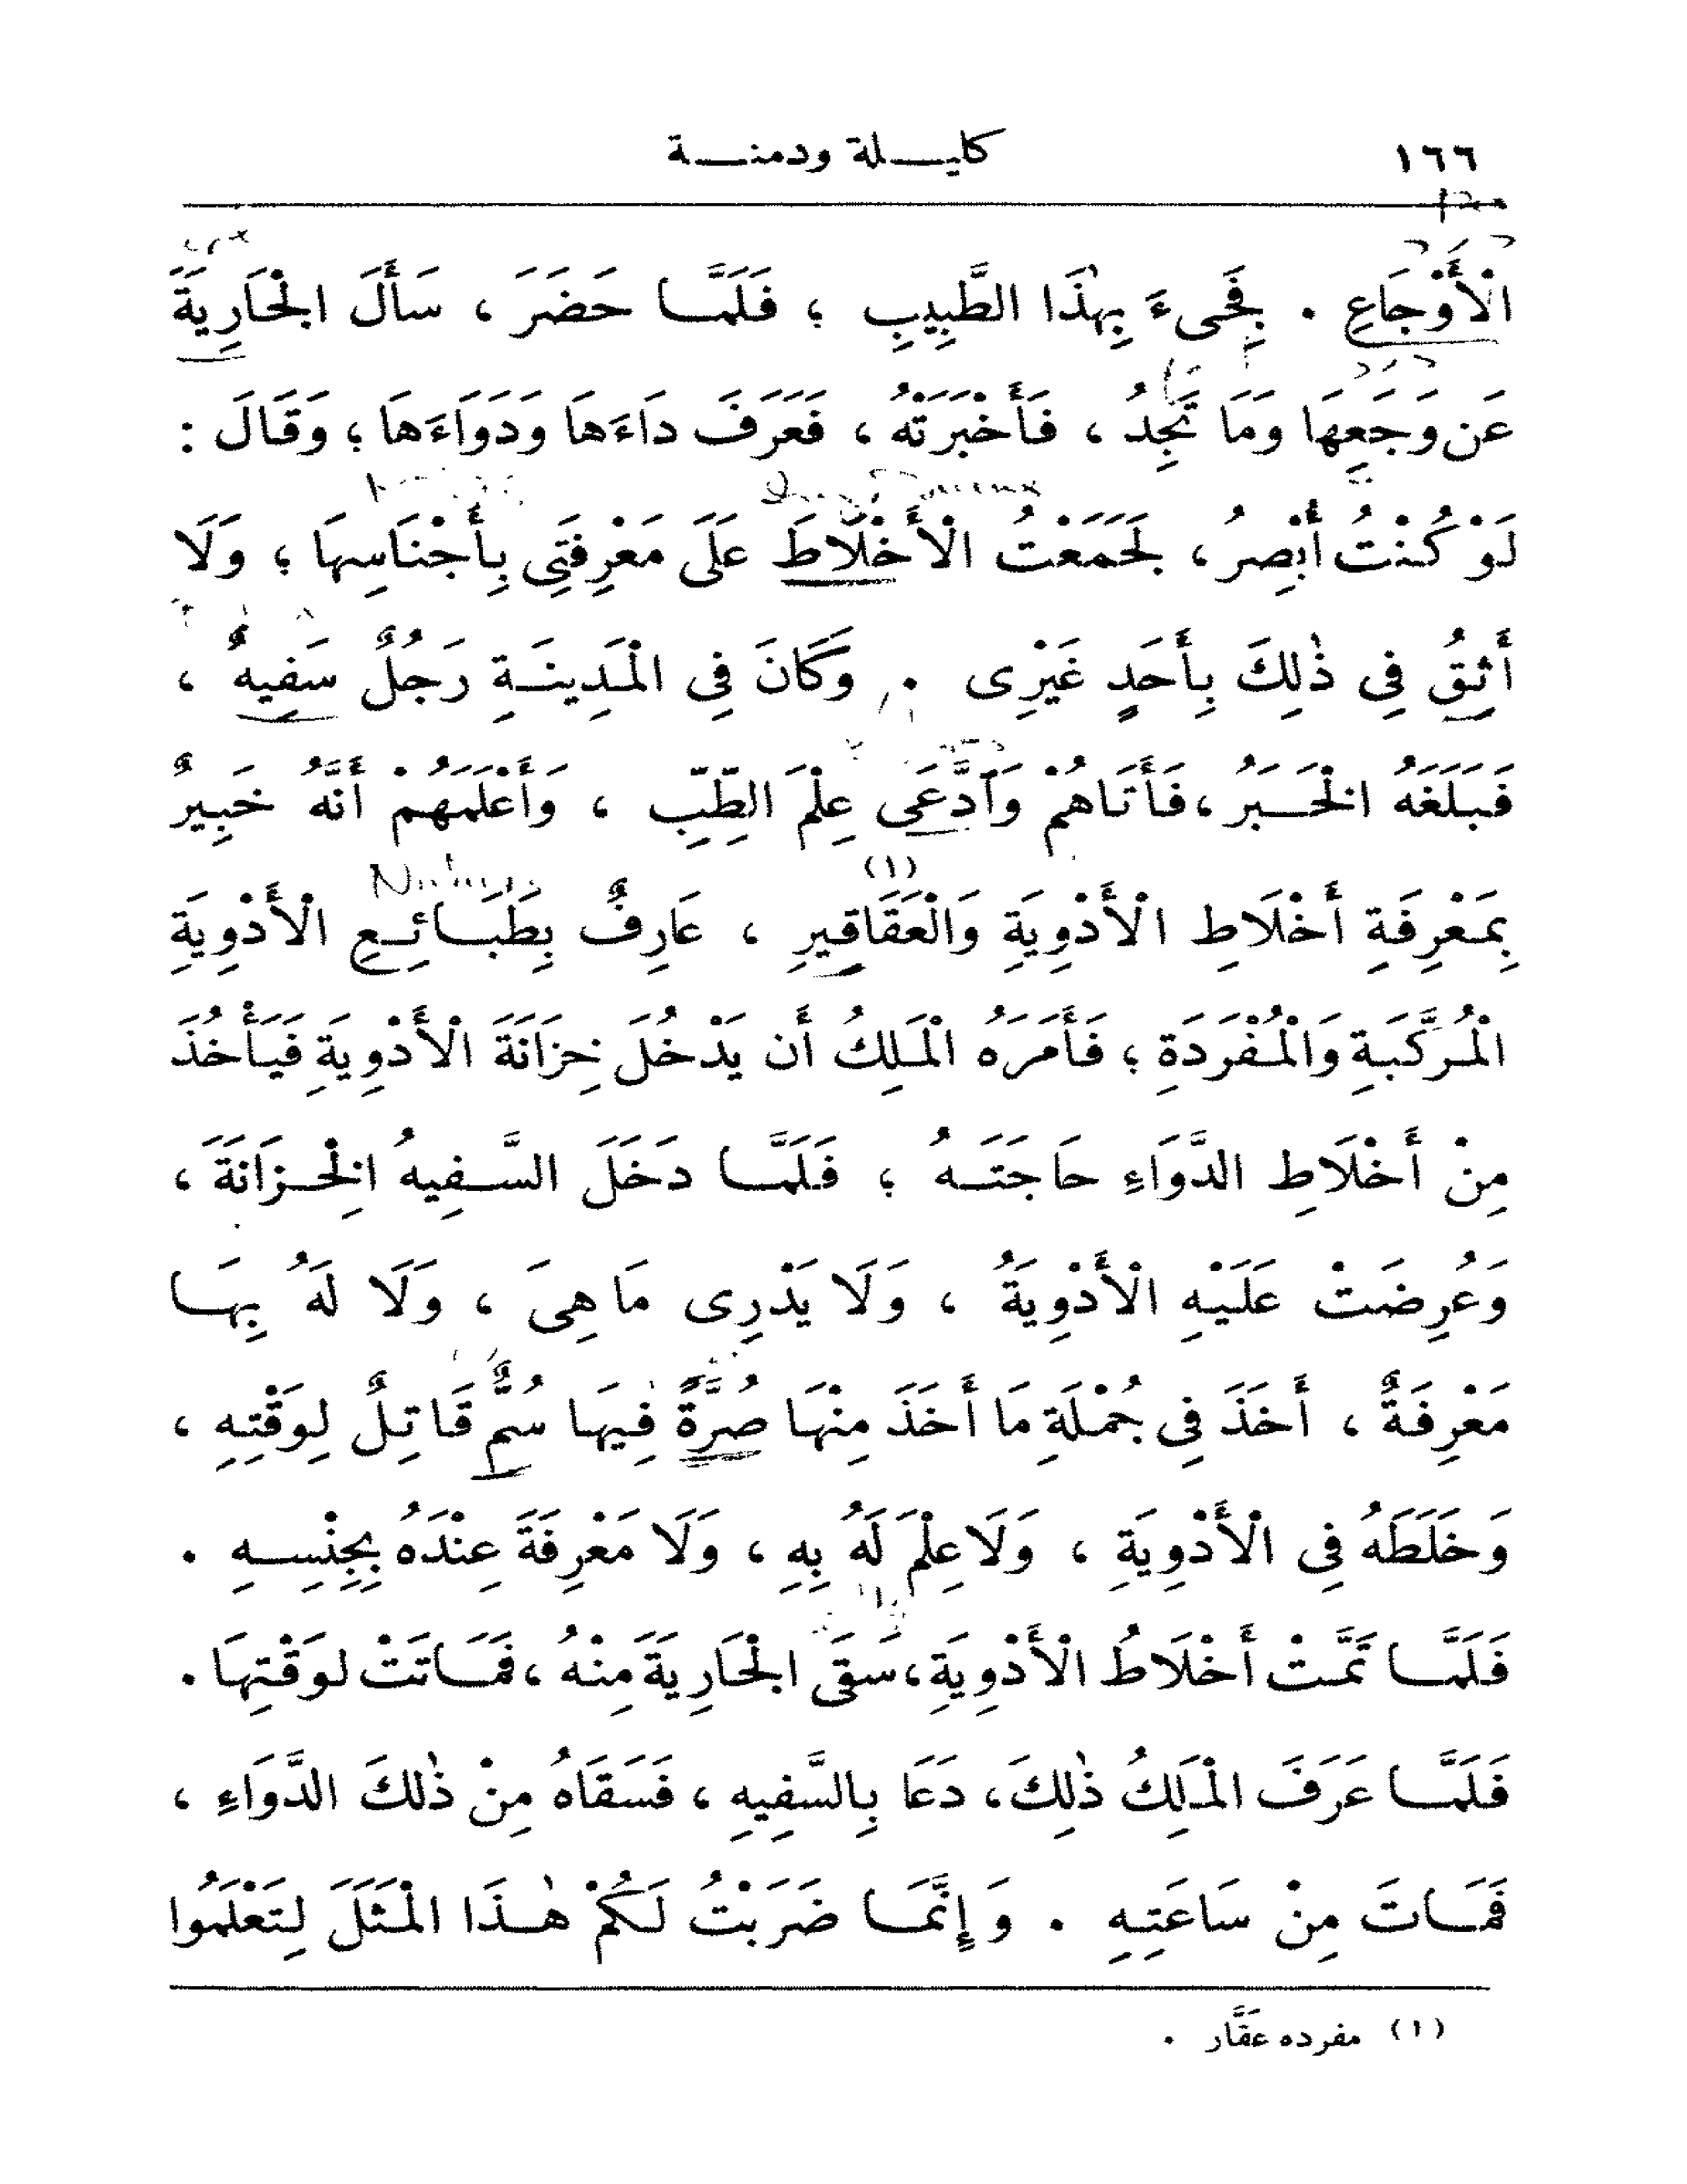 ١٦٦
كليلة ودمنة
الْأَوْجَاعِ . فَجِىءَ بِهٰذَا الطَّبِيبِ ؛ فَلَمَّا حَضَرَ ، سَأَلَ الْجَارِيَةَ
عَن وَجَعِهَا وَمَا تَجِدُ ، فَأَخْبَرَتْهُ ، فَعَرَفَ دَاءَهَا وَدَوَاءَهَا ؛ وَقَالَ :
لَوْ كُنْتُ أُبْصِرُ ، لَجَمَعْتُ الْأَخْلَاطَ عَلَى مَعْرِفَتِى بِأَجْنَاسِهَا ؛ وَلَا
أَثِقُ فِى ذٰلِكَ بِأَحَدٍ غَيْرِى . وَكَانَ فِى الْمَدِينَةِ رَجُلٌ سَفِيهٌ ،
فَبَلَغَهُ الْخَبَرُ ، فَأَتَاهُمْ وَٱدَّعَى عِلْمَ الطِّبِّ ، وَأَعْلَمَهُمْ أَنَّهُ خَبِيرٌ
بِمَعْرِفَةِ أَخْلَاطِ الْأَدْوِيَةِ وَالْعَقَاقِيرِ (١) ، عَارِفٌ بِطَبَائِعِ الْأَدْوِيَةِ
الْمُرَكَّبَةِ وَالْمُفْرَدَةِ ؛ فَأَمَرَهُ الْمَلِكُ أَن يَدْخُلَ خِزَانَةَ الْأَدْوِيَةِ فَيَأْخُذَ
مِنْ أَخْلَاطِ الدَّوَاءِ حَاجَتَهُ ؛ فَلَمَّا دَخَلَ السَّفِيهُ الْخِزَانَةَ ،
وَعُرِضَتْ عَلَيْهِ الْأَدْوِيَةُ ، وَلَا يَدْرِى مَا هِىَ ، وَلَا لَهُ بِهَا
مَعْرِفَةٌ ، أَخَذَ فِى جُمْلَةِ مَا أَخَذَ مِنْهَا صُرَّةً فِيهَا سُمٌّ قَاتِلٌ لِوَقْتِهِ ،
وَخَلَطَهُ فِى الْأَدْوِيَةِ ، وَلَا عِلْمَ لَهُ بِهِ ، وَلَا مَعْرِفَةَ عِنْدَهُ بِجِنْسِهِ .
فَلَمَّا تَمَّتْ أَخْلَاطُ الْأَدْوِيَةِ ، سَقَى الْجَارِيَةَ مِنْهُ ، فَمَاتَتْ لِوَقْتِهَا .
فَلَمَّا عَرَفَ الْمَلِكُ ذٰلِكَ ، دَعَا بِالسَّفِيهِ ، فَسَقَاهُ مِنْ ذٰلِكَ الدَّوَاءِ ،
فَمَاتَ مِنْ سَاعَتِهِ . وَإِنَّمَا ضَرَبْتُ لَكُمْ هٰذَا الْمَثَلَ لِتَعْلَمُوا
(١) مفرده عَقَّار .